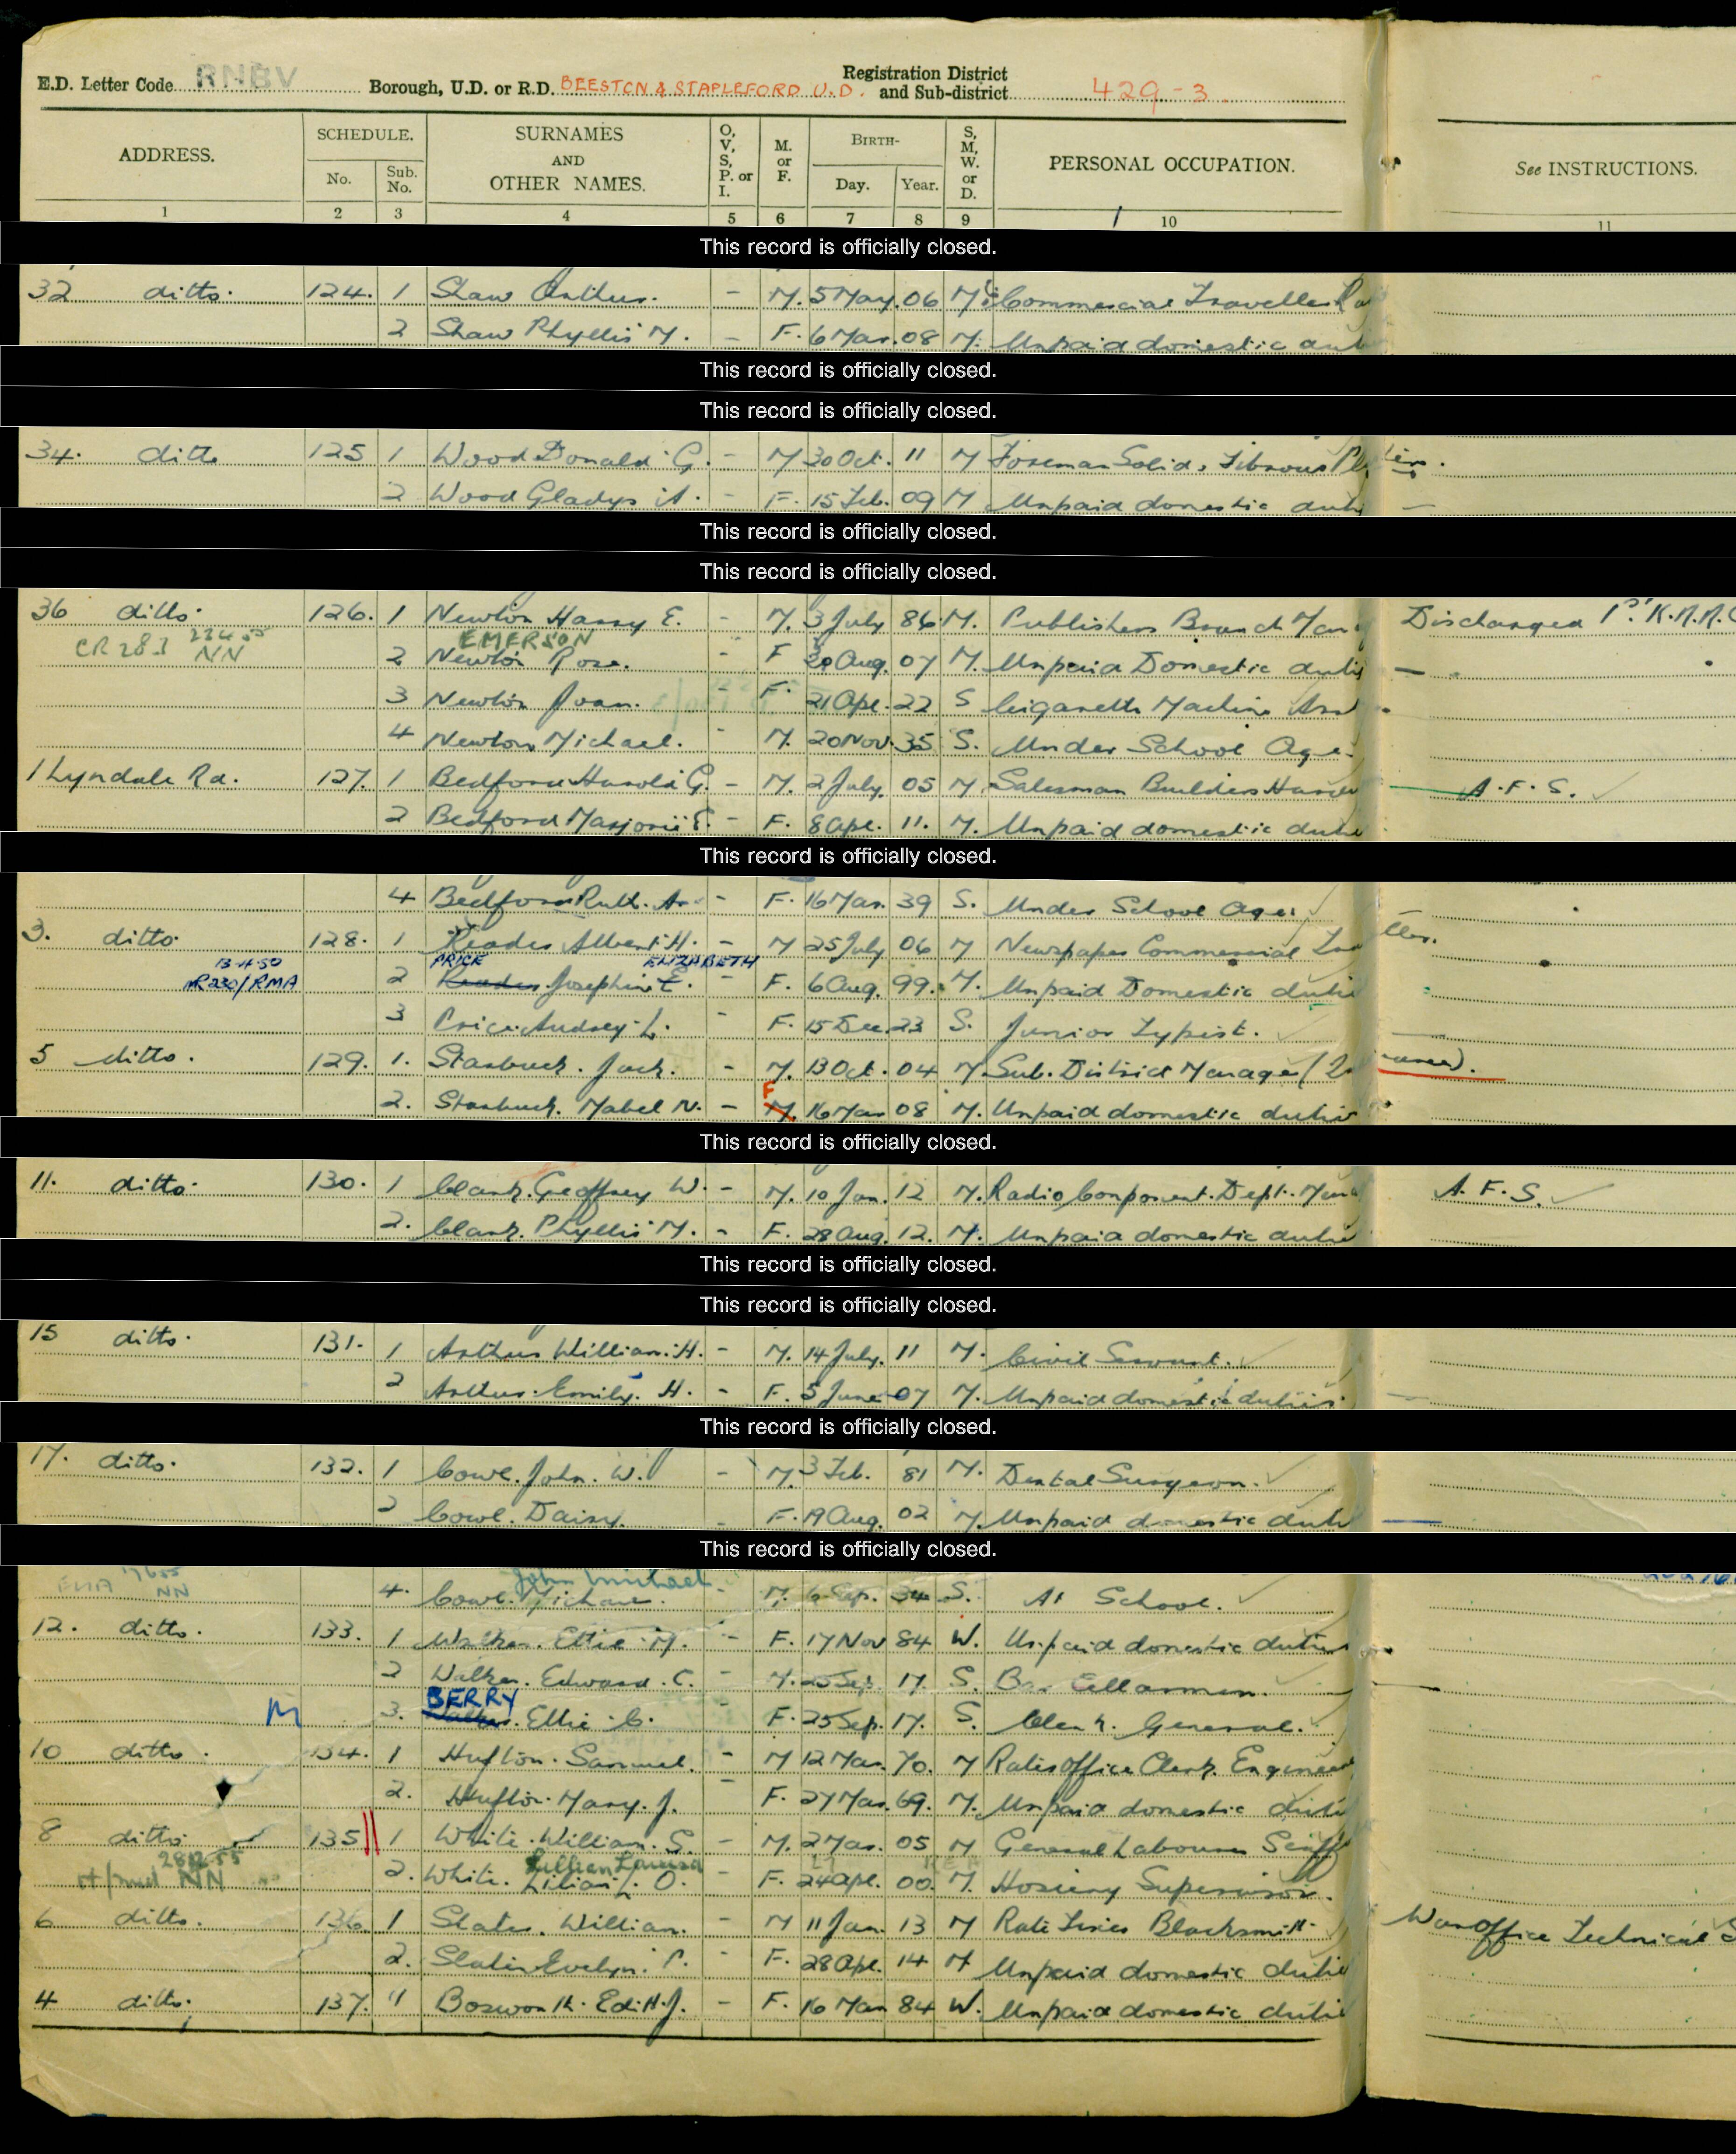 E.D. Letter Code RNBV Borough, U.D. or R.D. BEESTON & STAPLEFORD U.D. Registration District and Sub-district 429-3
ADDRESS. SCHEDULE. No. Sub. No. SURNAMES AND OTHER NAMES. O, V, S, P. or I. M. or F. BIRTH- Day. Year. S, M, W. or D. PERSONAL OCCUPATION. See INSTRUCTIONS.
1 2 3 4 5 6 7 8 9 10 11
This record is officially closed.
32 ditto. 124. 1 Shaw Arthur. - M. 5 May. 06 M. Commercial Traveller
2 Shaw Phyllis M. - F. 6 Mar. 08 M. Unpaid domestic
This record is officially closed.
This record is officially closed.
34. ditto 125 1 Wood Donald G. - M 30 Oct. 11 M Foreman Solid, Fibrous
2 Wood Gladys A. - F. 15 Feb. 09 M Unpaid domestic
This record is officially closed.
This record is officially closed.
36 ditto. 126. 1 Newton Harry E. - M. 3 July 86 M. Publishers Branch Discharged
EMERSON
CR 283 NN 2 Newton Rose. - F 30 Aug. 07 M. Unpaid Domestic
3 Newton Joan. F. 21 Apl. 22 S Cigarette Machine
4 Newton Michael. - M. 20 Nov. 35 S. Under School Age.
1 Lyndale Rd. 127. 1 Bedford Harold G. - M. 2 July. 05 M. Salesman Builders A.F.S.
2 Bedford Marjorie E. - F. 8 Apl. 11. M. Unpaid domestic
This record is officially closed.
4 Bedford Ruth. A. - F. 16 Mar. 39 S. Under School Age.
3. ditto. 128. 1 Reader Albert H. - M 25 July 06 M Newspaper Commercial
13.4.50 PRICE ELIZABETH
2 Josephine E. - F. 6 Aug. 99. M. Unpaid Domestic
3 Price. Audrey. L. - F. 15 Dec. 23 S. Junior Typist.
5 ditto. 129. 1. Starbuck. Jack. - M. 13 Oct. 04 M. Sub. District Manager
F
2. Starbuck. Mabel N. - M. 16 Mar 08 M. Unpaid domestic
This record is officially closed.
11. ditto. 130. 1 Clark. Geoffrey W. - M. 10 Jan. 12 M. Radio Component. Dept. A.F.S.
2. Clark. Phyllis M. - F. 28 Aug. 12. M. Unpaid domestic
This record is officially closed.
This record is officially closed.
15 ditto. 131. 1 Arthur William. H. - M. 14 July. 11 M. Civil Servant.
2 Arthur. Emily. H. - F. 5 June 07 M. Unpaid domestic duties.
This record is officially closed.
17. ditto. 132. 1 Cowl. John. W. - M. 3 Feb. 81 M. Dental Surgeon.
2 Cowl. Daisy. F. 19 Aug. 02 M. Unpaid domestic
This record is officially closed.
NN John Michael
4. Cowl. Michael. - M. 6 Sep. 34 S. At School.
12. ditto. 133. 1 Walker. Ellie. M. - F. 17 Nov 84 W. Unpaid domestic duties
2 Walker. Edward. C. - M. 25 Sep. 17. S. Bar Cellarman.
BERRY
M 3. Ellie. C. F. 25 Sep. 17. S. Clerk. General.
10 ditto. 134. 1 Hufton. Samuel. - M 12 Mar. 70. M Rates Office Clerk.
2. Hufton. Mary. J. - F. 27 Mar. 69. M. Unpaid domestic
8 ditto 135 1 White. William. S. - M. 2 Mar. 05 M General Labourer
NN Lillian Louisa
2. White. Lilian L. O. F. 24 Apl. 00. M. Hosiery Supervisor.
6 ditto. 136. 1 Slater. William. - M 11 Jan. 13 M Rate Fixer Blacksmith. War office Technical
2. Slater Evelyn. P. - F. 28 Apl. 14 M Unpaid domestic
4 ditto. 137. 1 Bosworth. Edith. J. - F. 16 Mar 84 W. Unpaid domestic